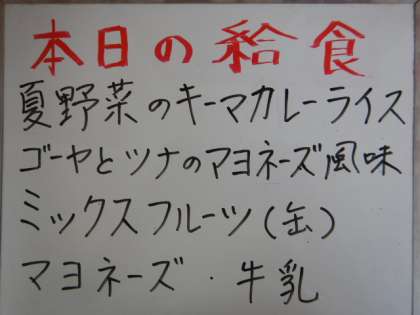 本日の給食
夏野菜のキーマカレーライス
ゴーヤとツナのマヨネーズ風味
ミックスフルーツ(缶)
マヨネーズ・牛乳